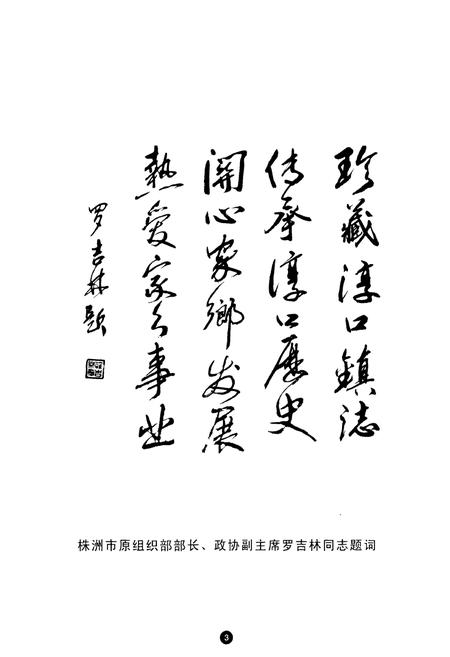 珍藏淳口鎮誌
传承淳口歷史
関心家鄉发展
熱爱家乡事业
罗吉林题
株洲市原组织部部长、政协副主席罗吉林同志题词
3